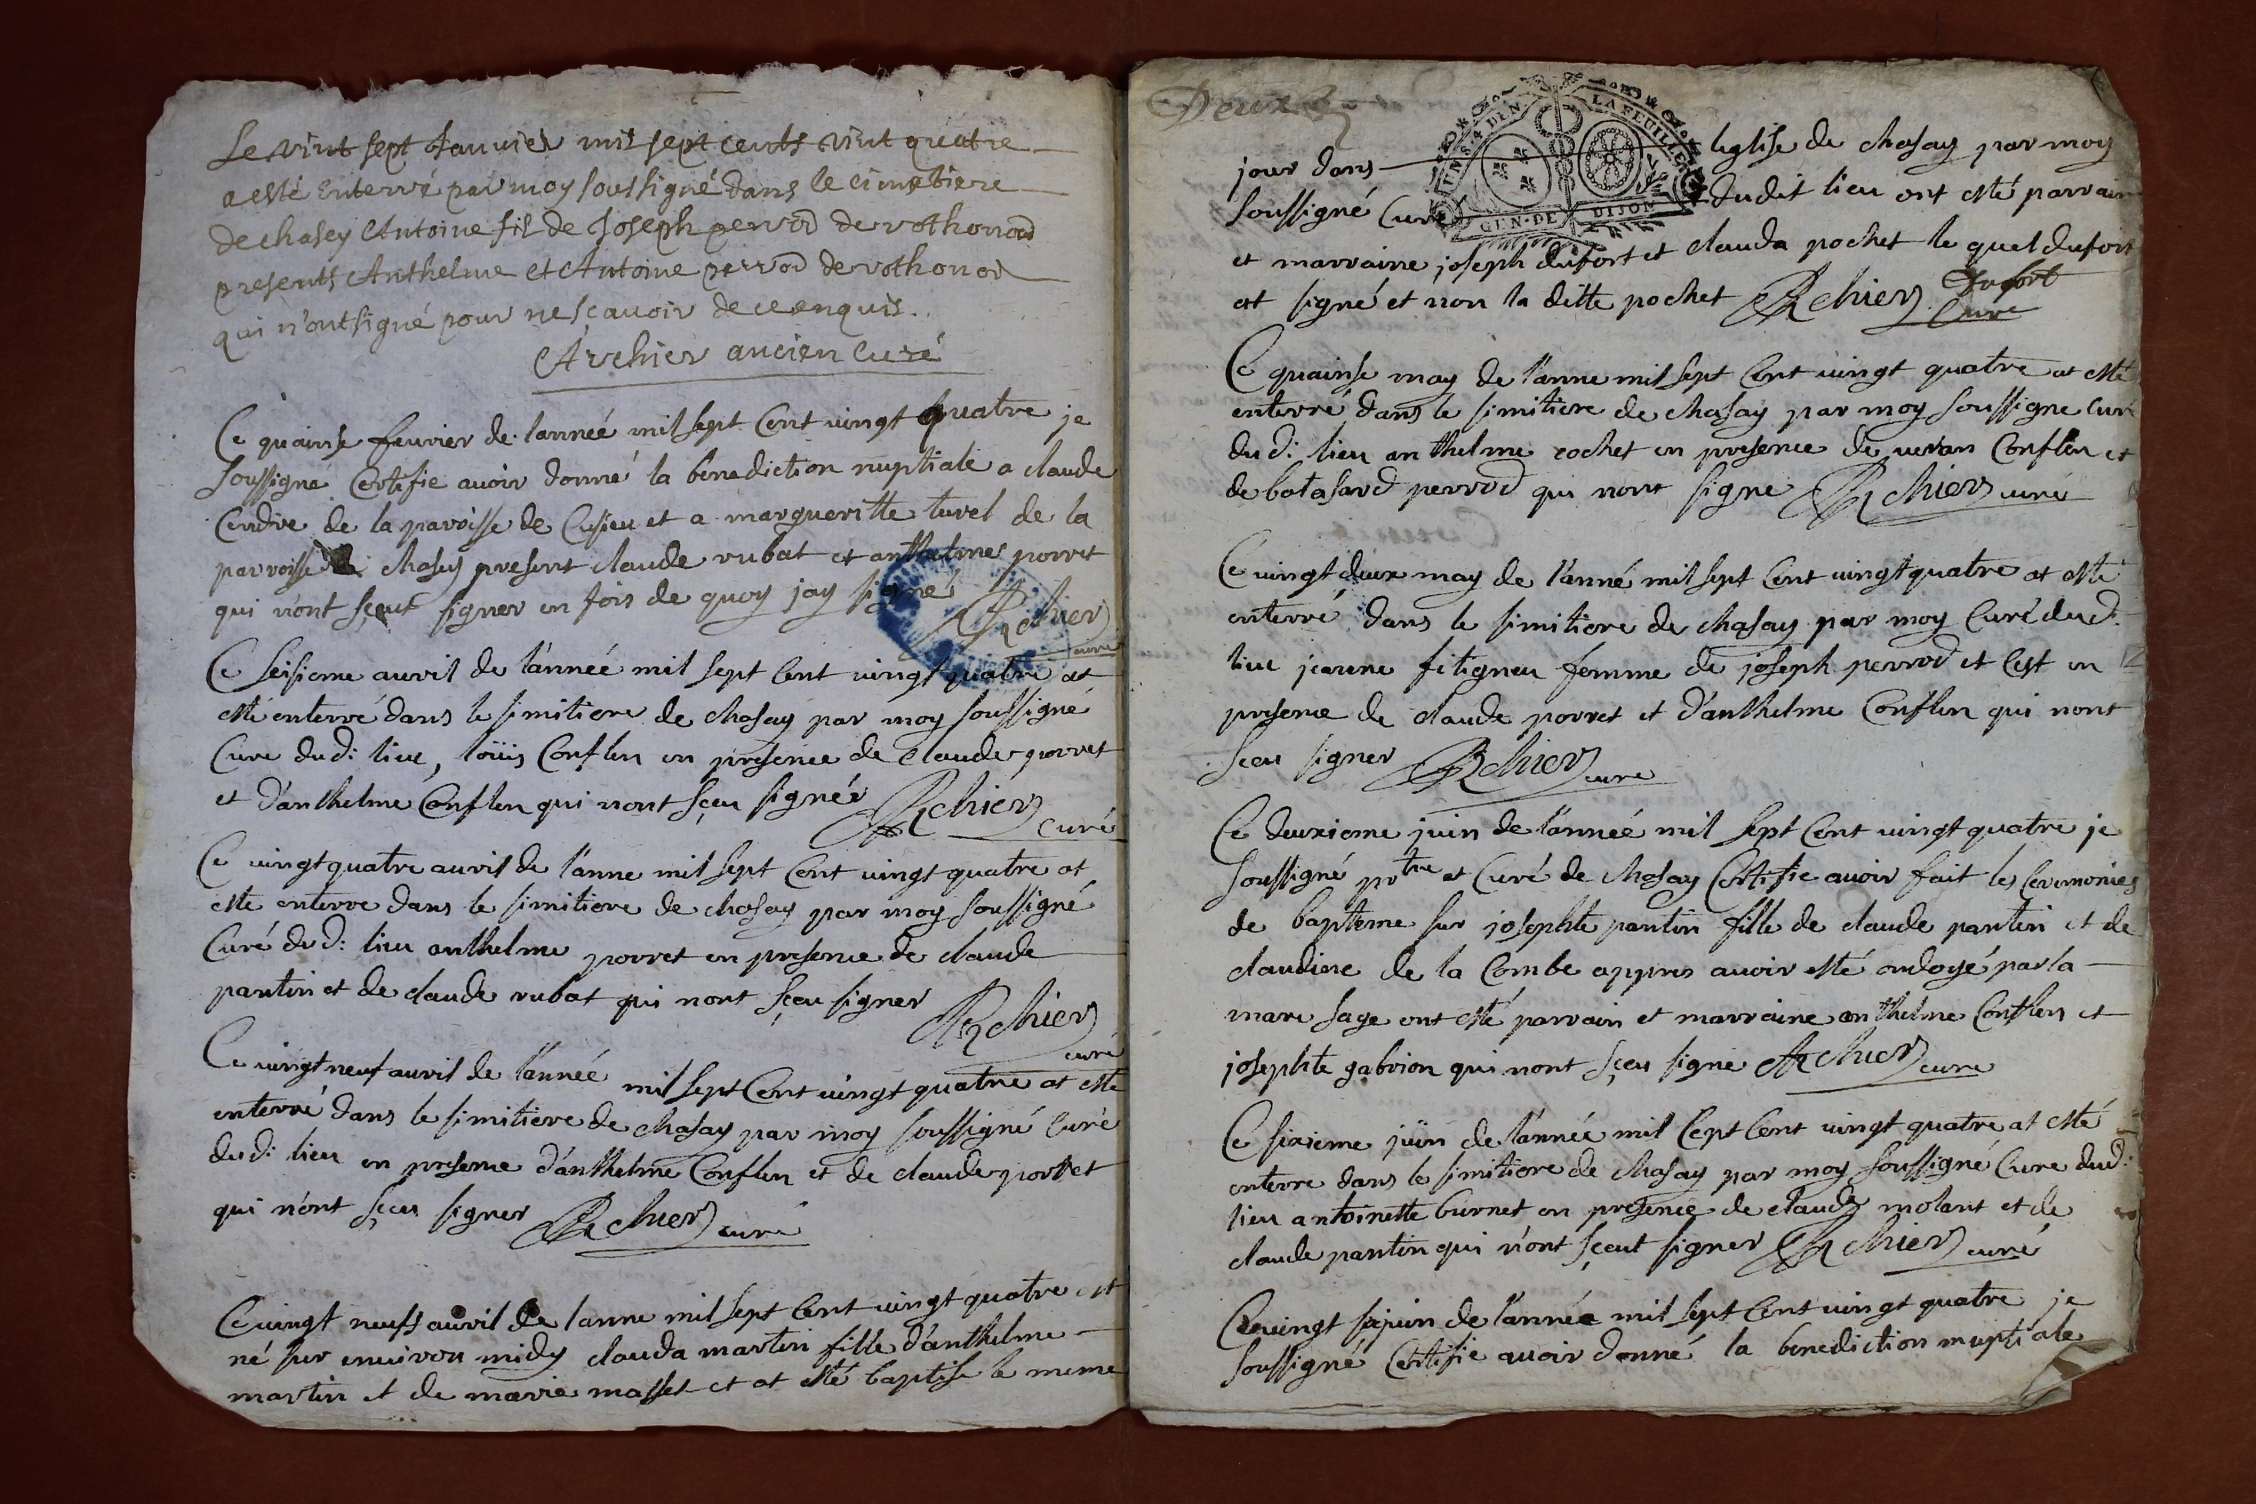 Le vint sept Janvier mil sept cents vint quatre
a esté enterré par moy soussigné dans le cimetiere
de chasey Antoine fil de Joseph perrod de rothonod
presents Anthelme et Antoine perrod de rothonod
qui n'ont signé pour ne sçavoir de ce enquis.
Archier ancien curé
Ce quainse feuvier de l'année mil sept Cent vingt quatre je
soussigné Certifie avoir donné la benediction nuptiale a claude
de la paroisse de Cusieu et a margueritte turel de la
parroisse chasey present claude rubat et anthelme porret
qui n'ont sçeut signer en fois de quoy jay signé
Archier
curé
Ce seisieme auvril de l'année mil sept Cent vingt quatre at
esté enterré dans le simitiere de chasay par moy soussigné
Cure dud: lieu, loüis Conflen en presence de claude porret
et d'anthelme Conflen qui nont sçeu signée Archier
curé
Ce vingt quatre auvril de l'anne mil sept Cent vingt quatre at
esté enterre dans le simitiere de chasay par moy soussigné
Curé dud: lieu anthelme porret en presence de claude
pantin et de claude rubat qui nont sçeu signer
Archier
curé
Ce vingt neuf auvril de l'année mil sept Cent vingt quatre at esté
enterré dans le simitiere de chasay par moy soussigné Curé
dud: lieu en presence d'anthelme Conflen et de claude porret
qui n'ont sçeu signer Archier curé
Ce vingt neufs auvril de lanne mil sept Cent vingt quatre est
né sur enuiron midy clauda martin fille d'anthelme
martin et de marie masset et at esté baptise le meme
Deux
UN S. 4 DEN. LA FEUILLE
GEN. DE DIJON
jour dans leglise de chasay par moy
soussigné Curé dudit lieu ont esté parrain
et marraine joseph dufort et clauda pochet le quel dufort
at signé et non la ditte pochet Archier Dufort
Curé
Ce quainse may de l'anne mil sept Cent vingt quatre at esté
enterré dans le simitiere de chasay par moy soussigne Curé
dud: lieu anthelme rochet en presence de veran Conflen et
de batasard perrod qui nont signe Archier curé
Ce vingt deux may de l'anné mil sept Cent vingt quatre at esté
enterré dans le simitiere de chasay par moy Curé dud:
lieu jeanne fitigneu femme de joseph perrod et Cest en
presence de claude porret et d'anthelme Conflen qui nont
sceu signer Archier curé
Ce deuxieme juin de l'année mil sept Cent vingt quatre je
soussigné prtre et Curé de chasay Certifie avoir fait les Ceremonies
de bapteme sur josephte pantin fille de claude pantin et de
claudine de la Combe appres avoir esté ondoyé par la
mare sage ont esté parrain et marraine anthelme Conflen et
josephte gabrion qui nont sçeu signe Archier curé
Ce sixieme juin de l'année mil Cept Cent vingt quatre at esté
enterre dans le simitiere de chasay par moy soussigné Cure dud:
lieu antoinette burnet en presence de claude molant et de
claude pantin qui n'ont sçeut signer Archier curé
Ce vingt juin de l'année mil sept Cent vingt quatre je
soussigné Certifie avoir donné la benediction nuptiale